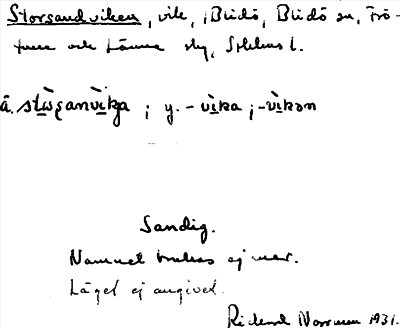 Storsandviken, vik, i Blidö, Blidö sn, Frö-
tuna och Länna skg, Sthlms l.
å. stὼʂanvìka ; y. -vìka ; -vìkən
Sandig.
Namnet brukas ej mer.
Läget ej angivet.
Rickard Norrman 1931.